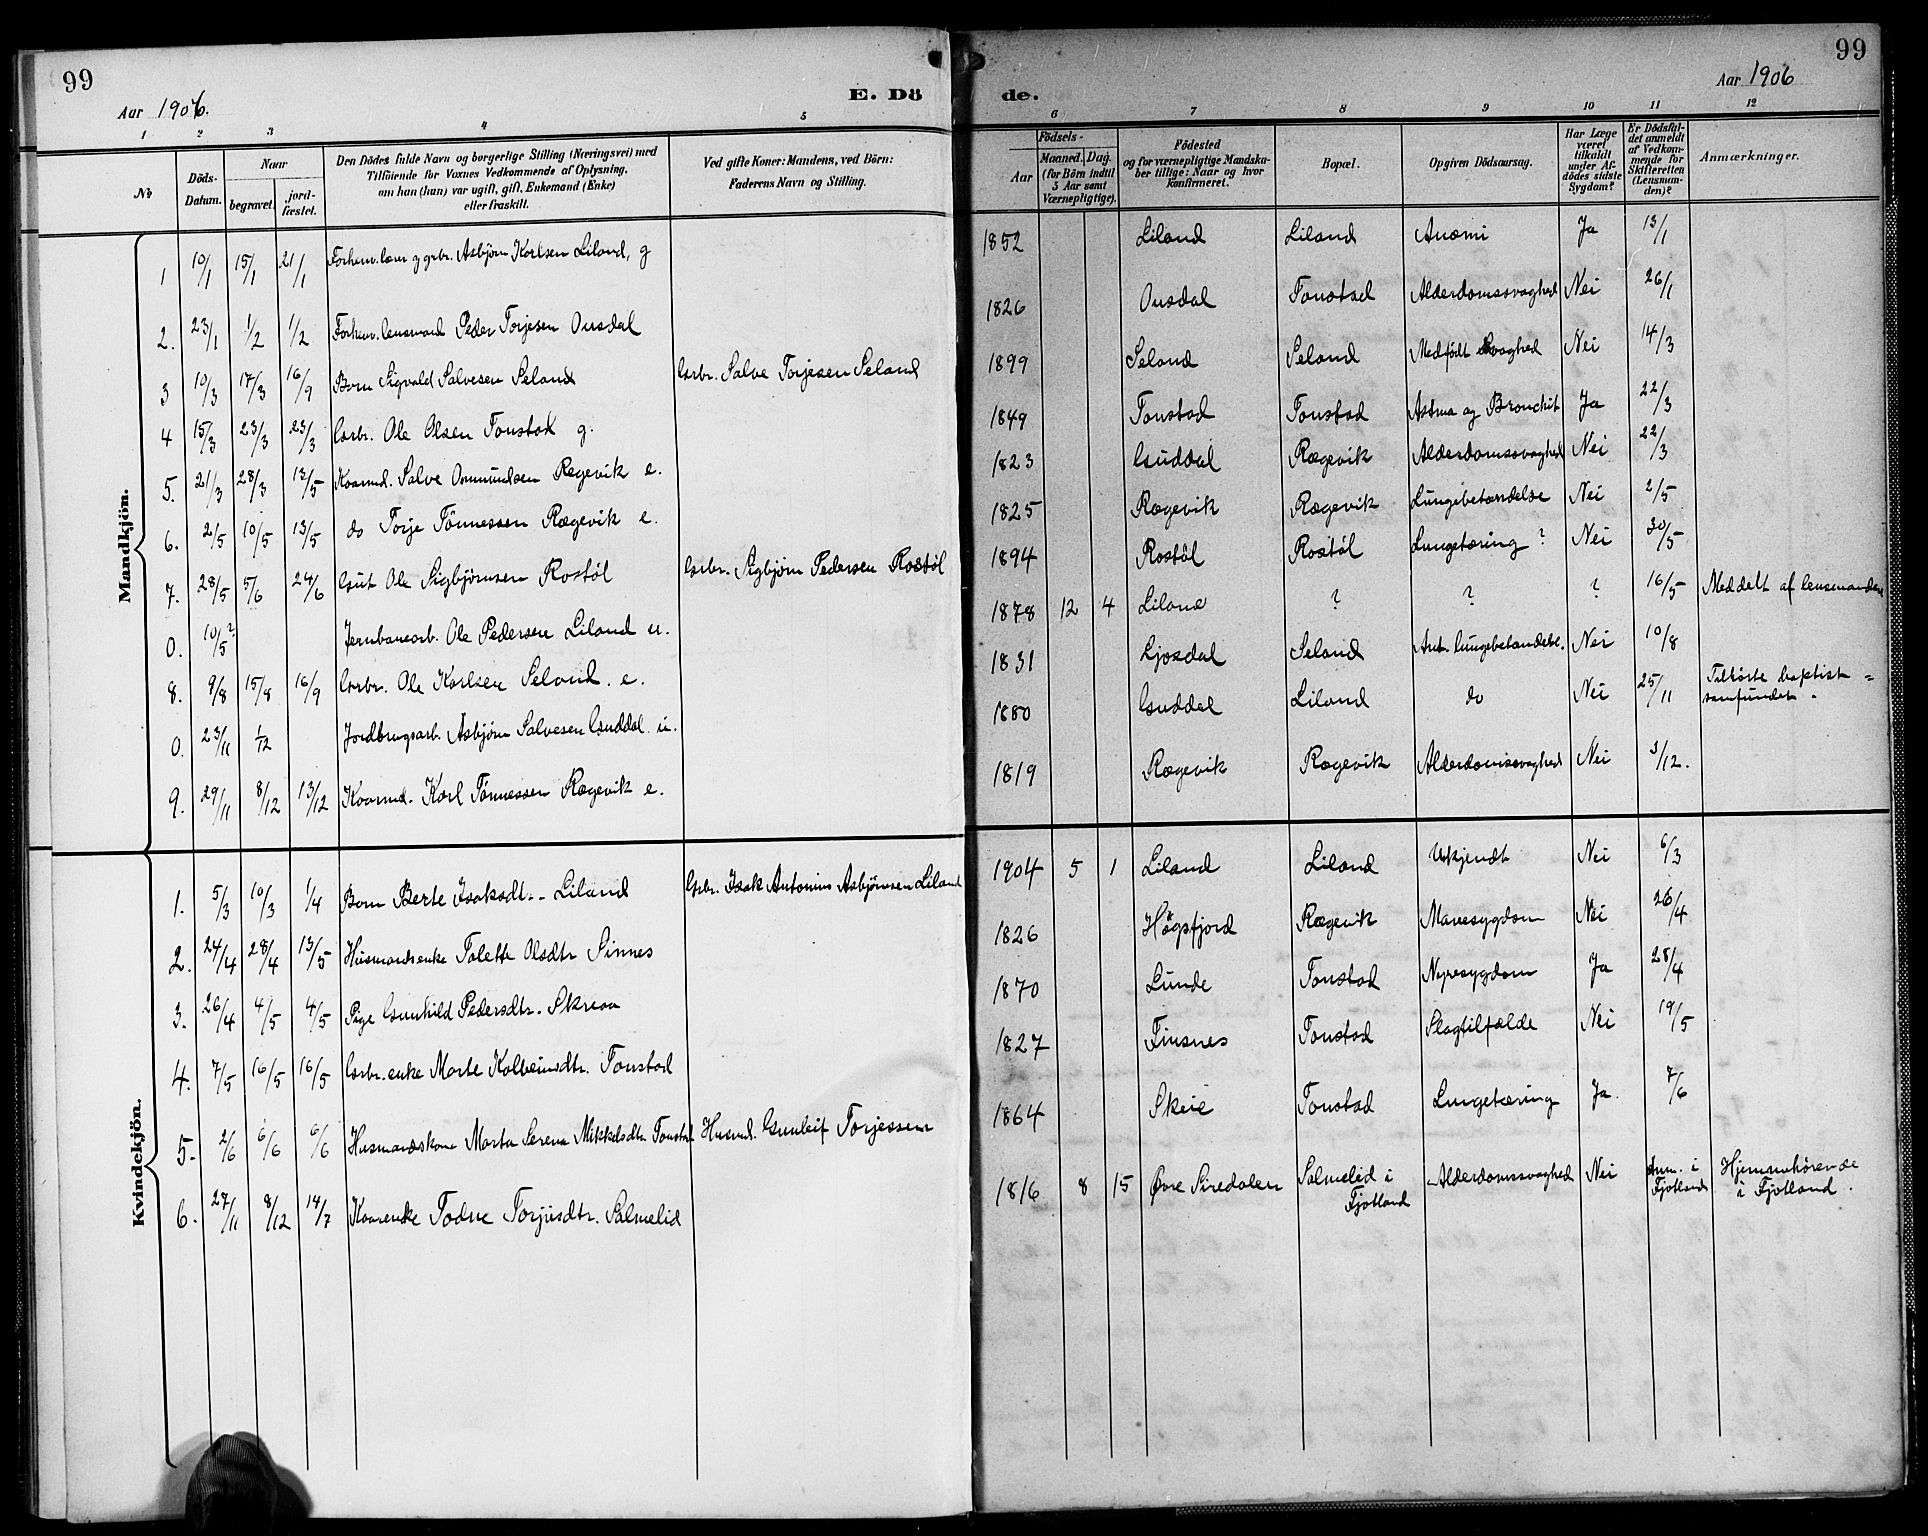 99
Aar 1906.
E. Dö
1 2 3 4 5
No
Döds-Datum.
Naar
begravet.
jord-fæstet.
Den Dödes fulde Navn og borgerlige Stilling (Næringsvei) med
Tilföiende for Voxnes Vedkommende af Oplysning,
om han (hun) var ugift, gift, Enkemand (Enke)
eller fraskilt.
Ved gifte Koner: Mandens, ved Börn:
Faderens Navn og Stilling.
Mandkjön.
1 10/1 15/1 21/1 Forhenv. lærer og grbr. Asbjørn Karlsen Liland, g
2. 23/1 1/2 1/2 Forhenv. lensmand Peder Torjesen Ousdal
3 10/3 17/3 16/9 Barn Sigvald Salvesen Seland Grbr. Salve Torjesen Seland
4 15/3 23/3 23/3 Grbr. Ole Olsen Tonstad g.
5. 21/3 28/3 13/5 Kaarmd. Salve Omundsen Regevik e.
6. 2/5 10/5 13/5 do Torje Tønnessen Rægevik e.
7. 28/5 5/6 24/6 Gut Ole Sigbjørnsen Rostøl Grbr. Sigbjørn Pedersen Rostøl
0. 10/5? Jernbanearb. Ole Pedersen Liland u.
8. 9/8 15/8 16/9 Grbr. Ole Karlsen Seland. e.
0. 23/11 1/12 Jordbrugsarb. Asbjørn Salvesen Guddal u.
9. 29/11 8/12 13/12 Kaarmd. Karl Tønnessen Rægevik e.
Kvindekjön.
1. 5/3 10/3 1/4 Barn Berte Isaksdt. Liland Grbr. Isak Antonius Asbjørnsen Liland
2. 24/4 28/4 13/5 Husmandsenke Talette Olsdtr Sinnes
3. 26/4 4/5 4/5 Pige Gunhild Pedersdtr. Skreaa
4. 7/5 16/5 16/5 Grbr. enke Marte Kolbeinsdtr. Tonstad
5. 2/6 6/6 6/6 Husmandskone Marta Serena Mikkelsdtr. Tonstad Husmd. Gunleif Torjessen
6. 27/11 8/12 14/7 Kaarenke Todne Torjusdtr. Salmelid
99
Aar 1906
de.
6 7 8 9 10 11 12
Födsels-
Aar
Maaned. Dag.
(for Börn indtil
3 Aar samt
Værnepligtige).
Födested
og for værnepligtige Mandska-
ber tillige: Naar og hvor
konfirmeret.
Bopæl.
Opgiven Dödsaarsag.
Har Læge
været
tilkaldt
under Af-
dödes sidste
Sygdom?
Er Dödsfal-
det anmeldt
af Vedkom-
mende for
Skifteretten
(Lensman-
den)?
Anmærkninger.
1852 Liland Liland Anæmi Ja 13/1
1826 Ousdal Tonstad Alderdomssvaghed Nei 26/1
1899 Seland Seland Medfødt Svaghed Nei 14/3
1849 Tonstad Tonstad Astma og Bronchit Ja 22/3
1823 Guddal Rægevik Alderdomssvaghed Nei 22/3
1825 Rægevik Rægevik Lungebetændelse Nei 2/5
1894 Rostøl Rostøl Lungetæring ? Nei 30/5
1878 12 4 Liland ? ? ? 16/5 Meddelt af lensmanden
1831 Ljosdal Seland Ant. lungebetændelse. Nei 10/8
1880 Guddal Liland do Nei 25/11 Tilhørte baptist=
samfundet.
1819 Rægevik Rægevik Alderdomssvaghed Nei 3/12.
1904 5 1 Liland Liland Ukjendt Nei 6/3
1826 Høgsfjord Rægevik Mavesygdom Nei 26/4
1870 Lunde Tonstad Nyresygdom Ja 28/4
1827 Finsnes Tonstad Slagtilfælde Nei 19/5
1864 Skeie Tonstad Lungetæring Ja. 7/6
1816 8 15 Øvre Siredalen Salmelid i
Fjotland Alderdomssvaghed Nei Anm. i
Fjotland Hjemmehørende
i Fjotland.